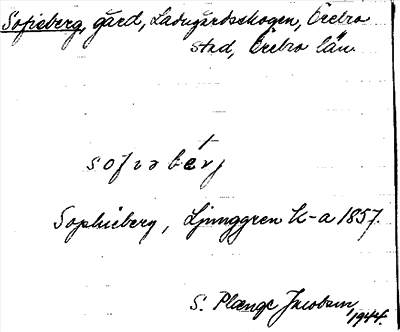 Sofieberg, gård, Ladugårdsskogen, Örebro
stad, Örebro län.
sofiəbérj
Sophieberg, Ljunggren K-a 1857.
S. Plænge Jacobsen
1944.